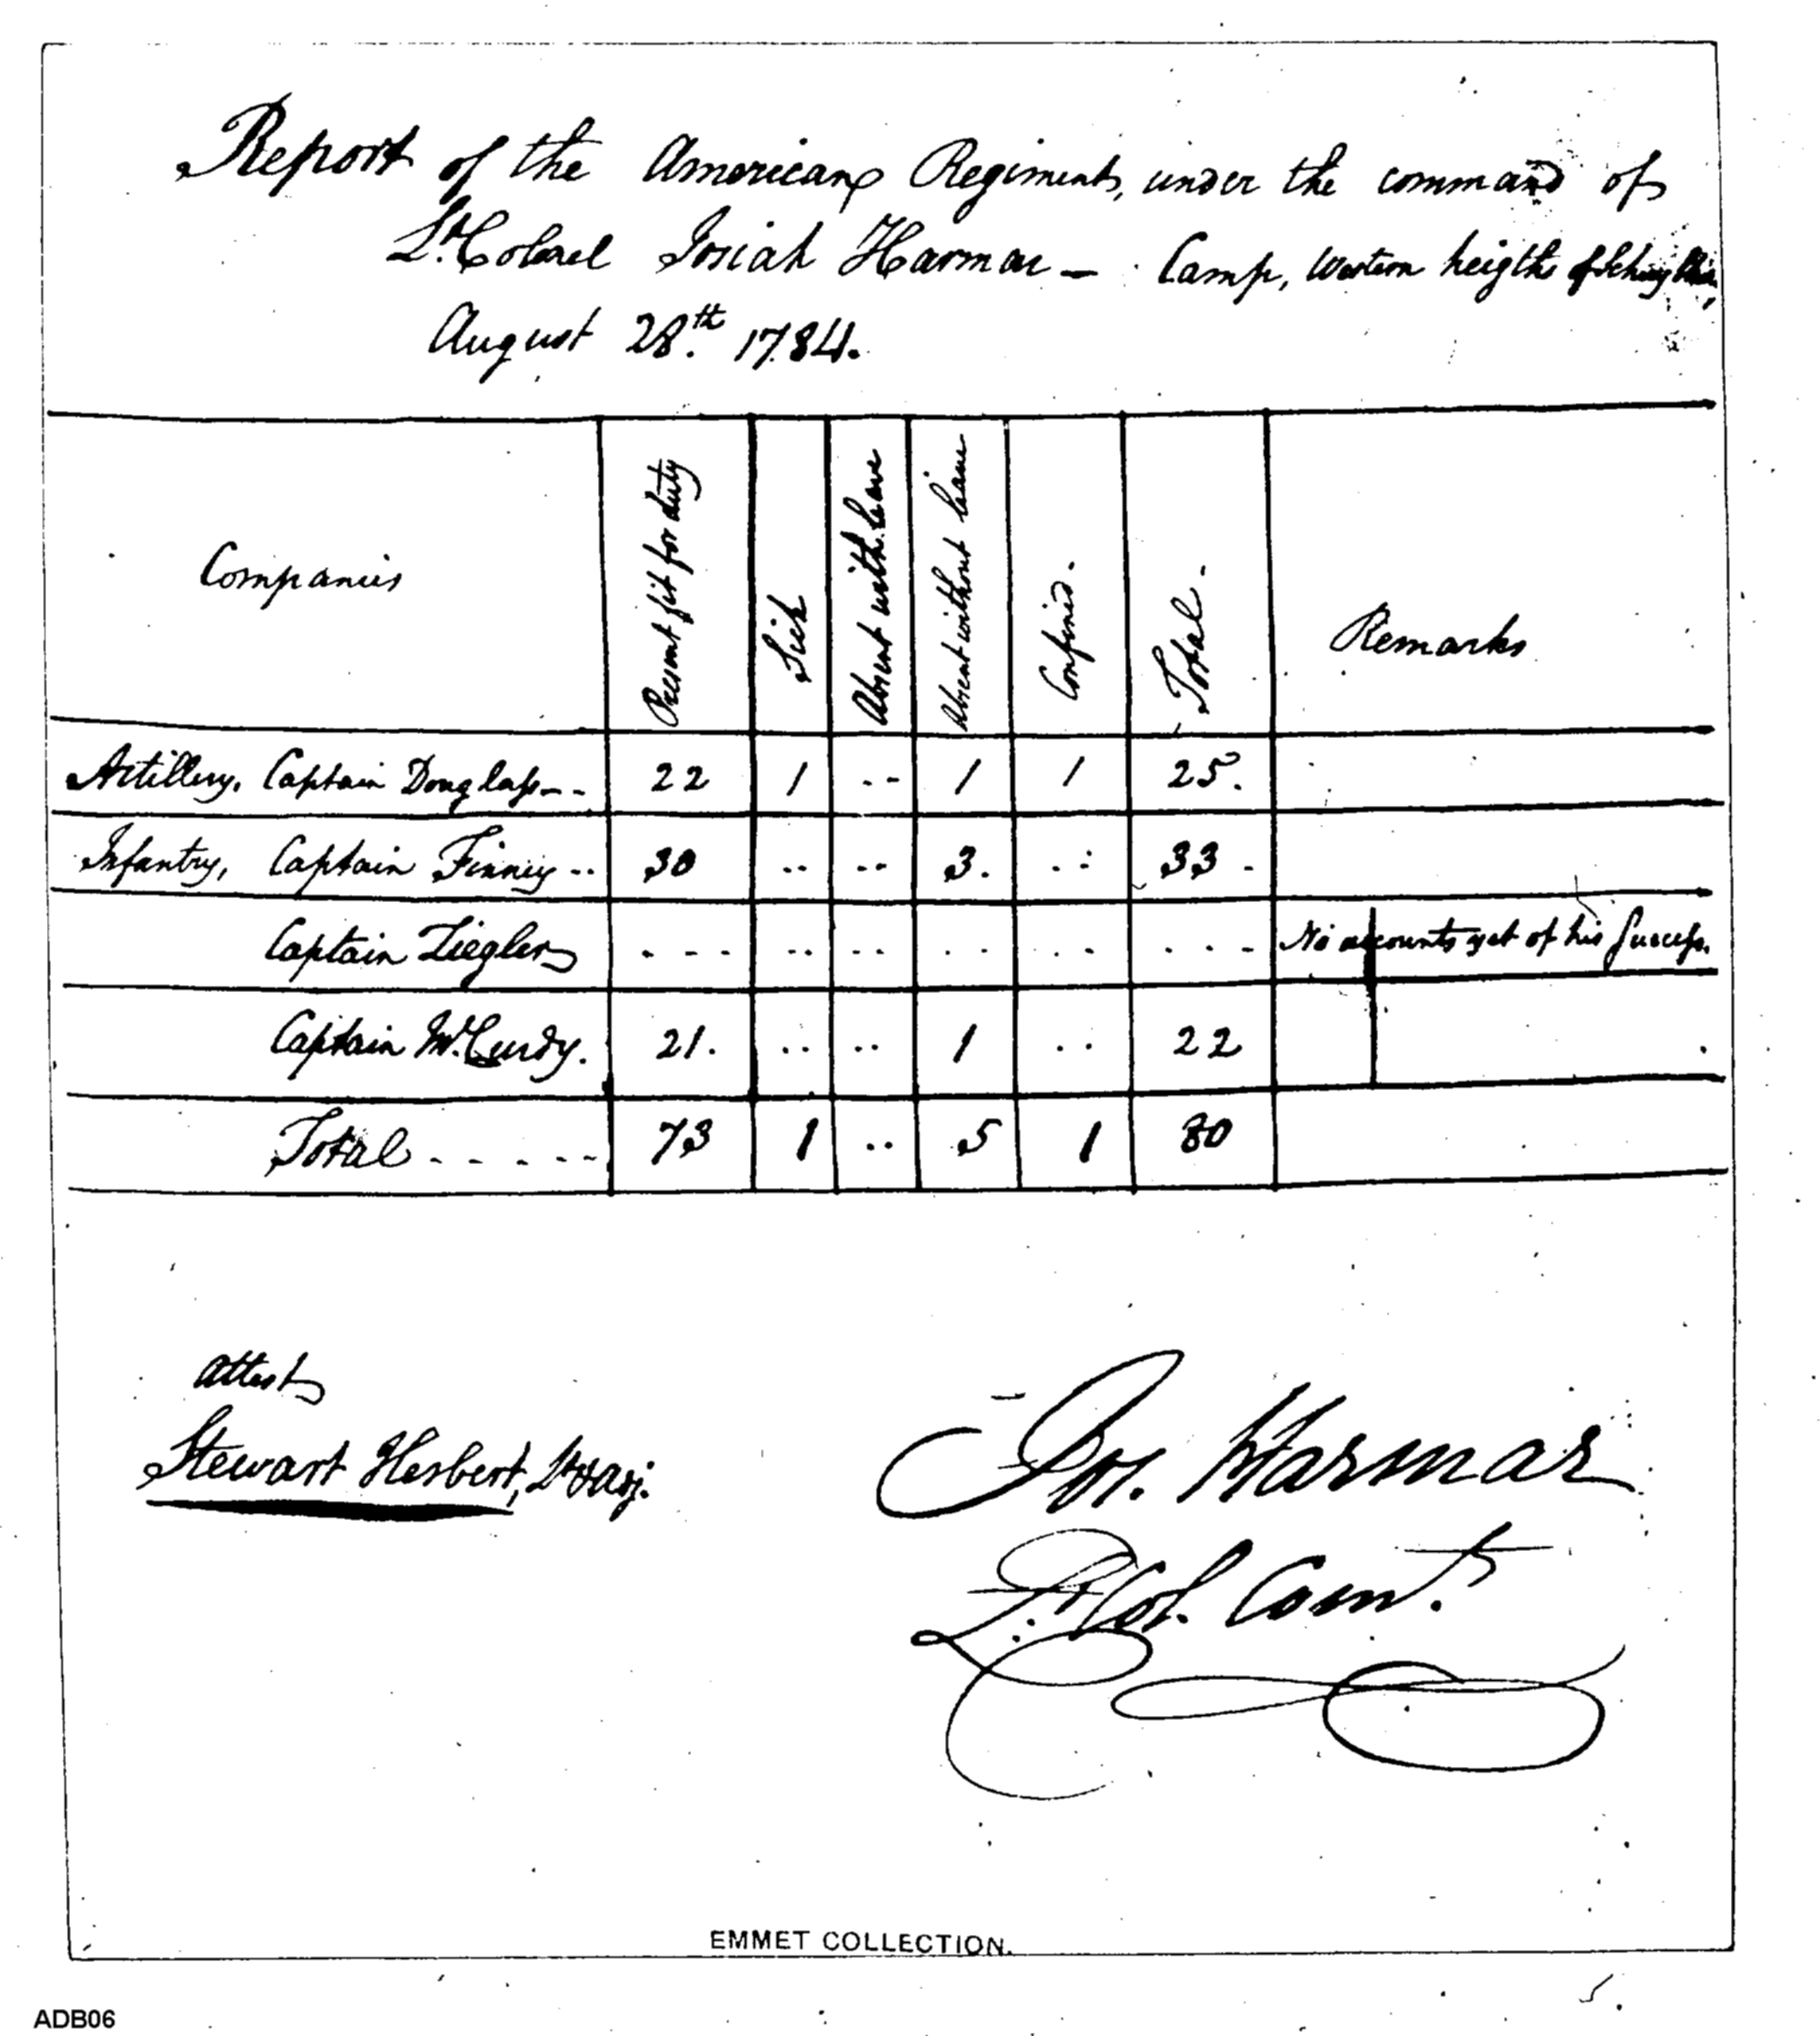 Report of the American Regiment, under the command of
Lt. Colonel Josiah Harmar — Camp, Western heigths of Schuylkill,
August 28th. 1784.
Companies
Present fit for duty
Sick
Absent with leave
Absent without leave
Confined.
Total.
Remarks
Artillery, Captain Douglass -- 22 1 -- 1 1 25.
Infantry, Captain Finney -- 30 .. -- 3. .. 33 -
Captain Ziegler - - - .. -- .. .. - - - - No accounts yet of his success.
Captain McCurdy. 21. .. .. 1 .. 22
Total - - - - - - 73 1 .. 5 1 80
Attest
Stewart Herbert, Lt & Adj.
Jos. Harmar
Lt. Col. Comt.
EMMET COLLECTION.
ADB06